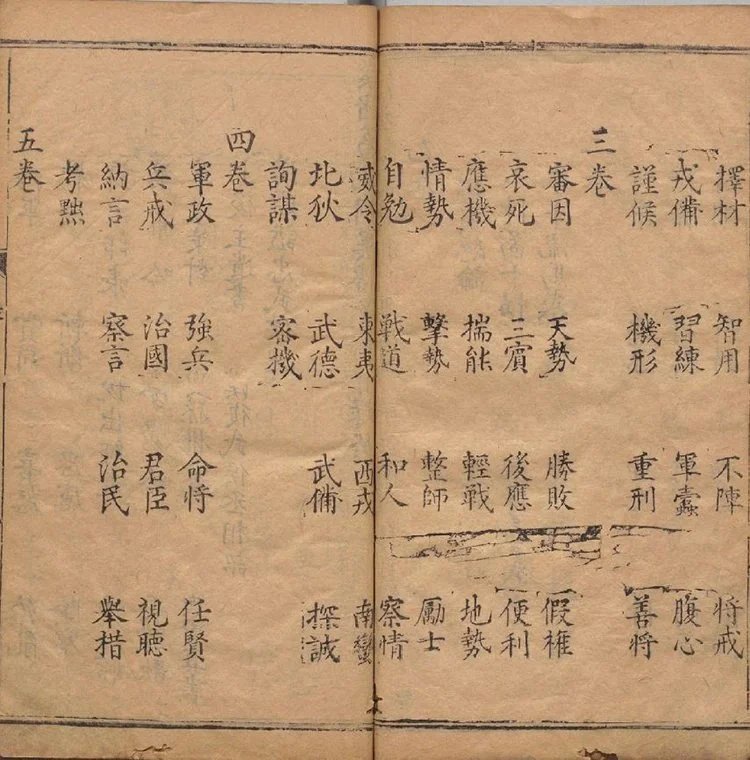 擇材 智用 不陣 將戒
戎備 習練 軍蠹 腹心
謹候 機形 重刑 善將
三卷
審因 天勢 勝敗 假權
哀死 三賓 後應 便利
應機 揣能 輕戰 地勢
情勢 擊勢 整師 勵士
自勉 戰道 和人 察情
威令 東夷 西戎 南蠻
北狄 武德 武備 探誠
詢謀 密機
四卷
軍政 強兵 命將 任賢
兵戒 治國 君臣 視聽
納言 察言 治民 舉措
考黜
五卷